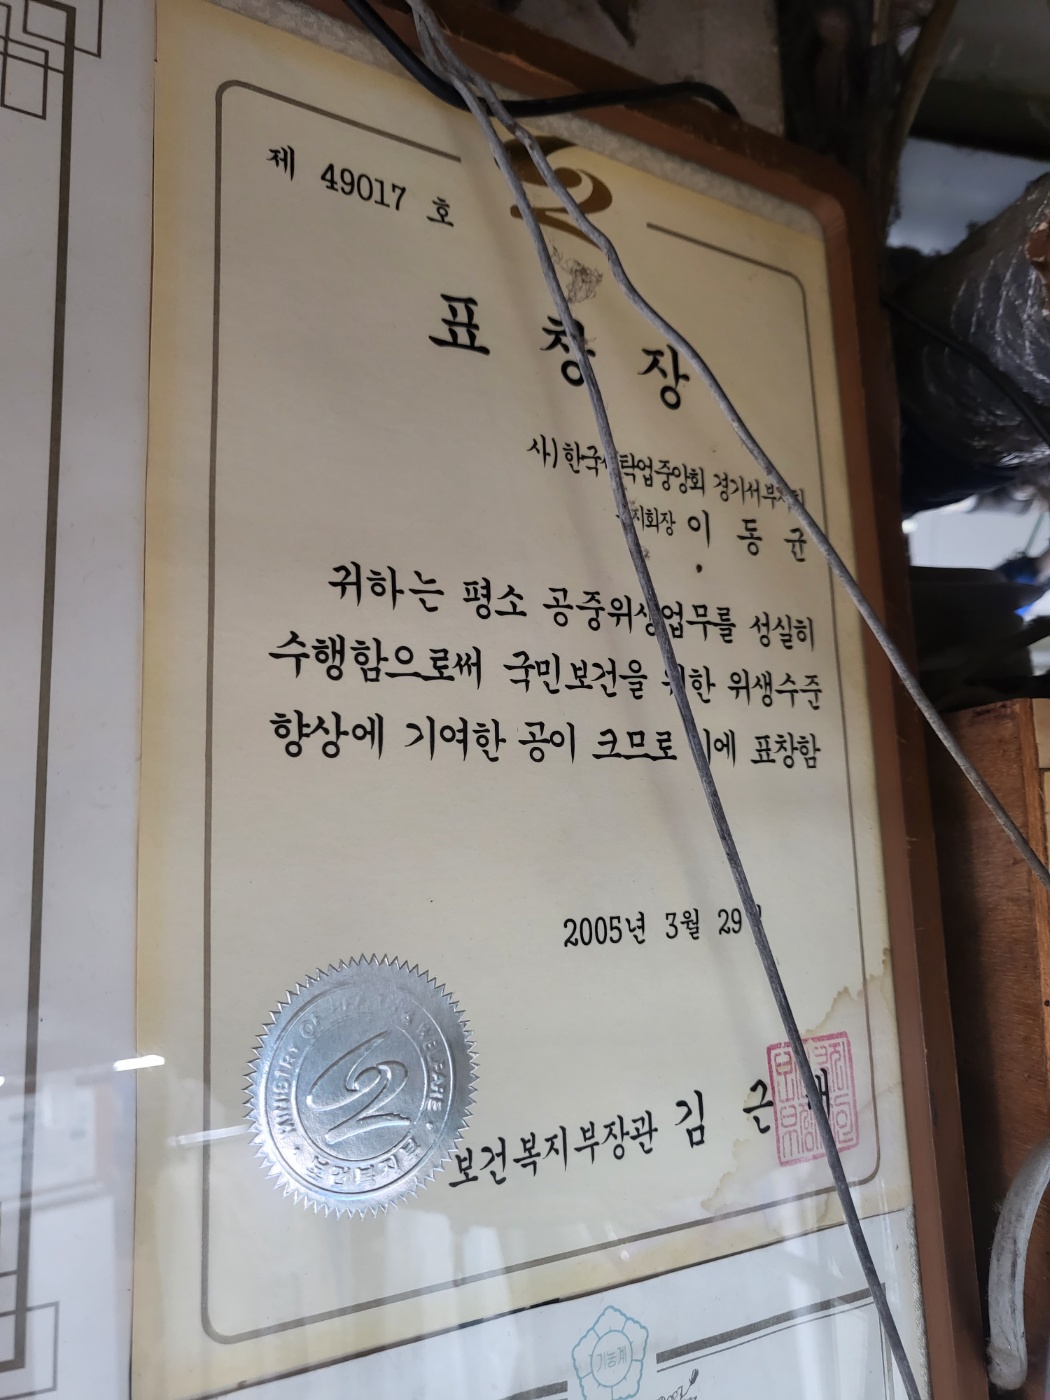 제 49017 호
표 창 장
사)한국세탁업중앙회 경기서부지회
지회장 이 동 균
귀하는 평소 공중위생업무를 성실히
수행함으로써 국민보건을 위한 위생수준
향상에 기여한 공이 크므로 이에 표창함
2005년 3월 29일
MINISTRY OF HEALTH & WELFARE
보건복지부
보건복지부장관 김 근 태
기능계